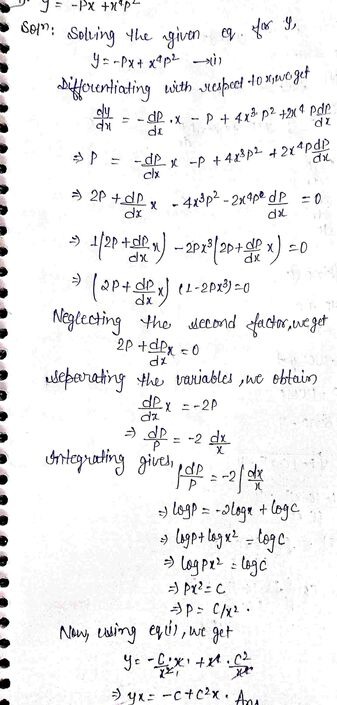 y = -Px + x⁴p²
Soln: Solving the given eq. for y,
y = -Px + x⁴p² →(i)
Differentiating with respect to x, we get
dy/dx = -dp/dx . x - p + 4x³p² + 2x⁴ p dp/dx
⇒ P = -dp/dx x - p + 4x³p² + 2x⁴p dp/dx
⇒ 2p + dp/dx x - 4x³p² - 2x⁴p dp/dx = 0
⇒ 1(2p + dp/dx x) - 2px³(2p + dp/dx x) = 0
⇒ (2p + dp/dx x) (1-2px³) = 0
Neglecting the second factor, we get
2p + dp/dx x = 0
separating the variables, we obtain
dp/dx x = -2p
⇒ dp/p = -2 dx/x
Integrating gives,
∫dp/p = -2∫dx/x
⇒ logp = -2logx + logc
⇒ logp + logx² = logc
⇒ logpx² = logc
⇒ px² = c
⇒ p = c/x².
Now, using eq(i), we get
y = -c/x² . x + x⁴ . c²/x⁴
⇒ yx = -c + c²x. Ans